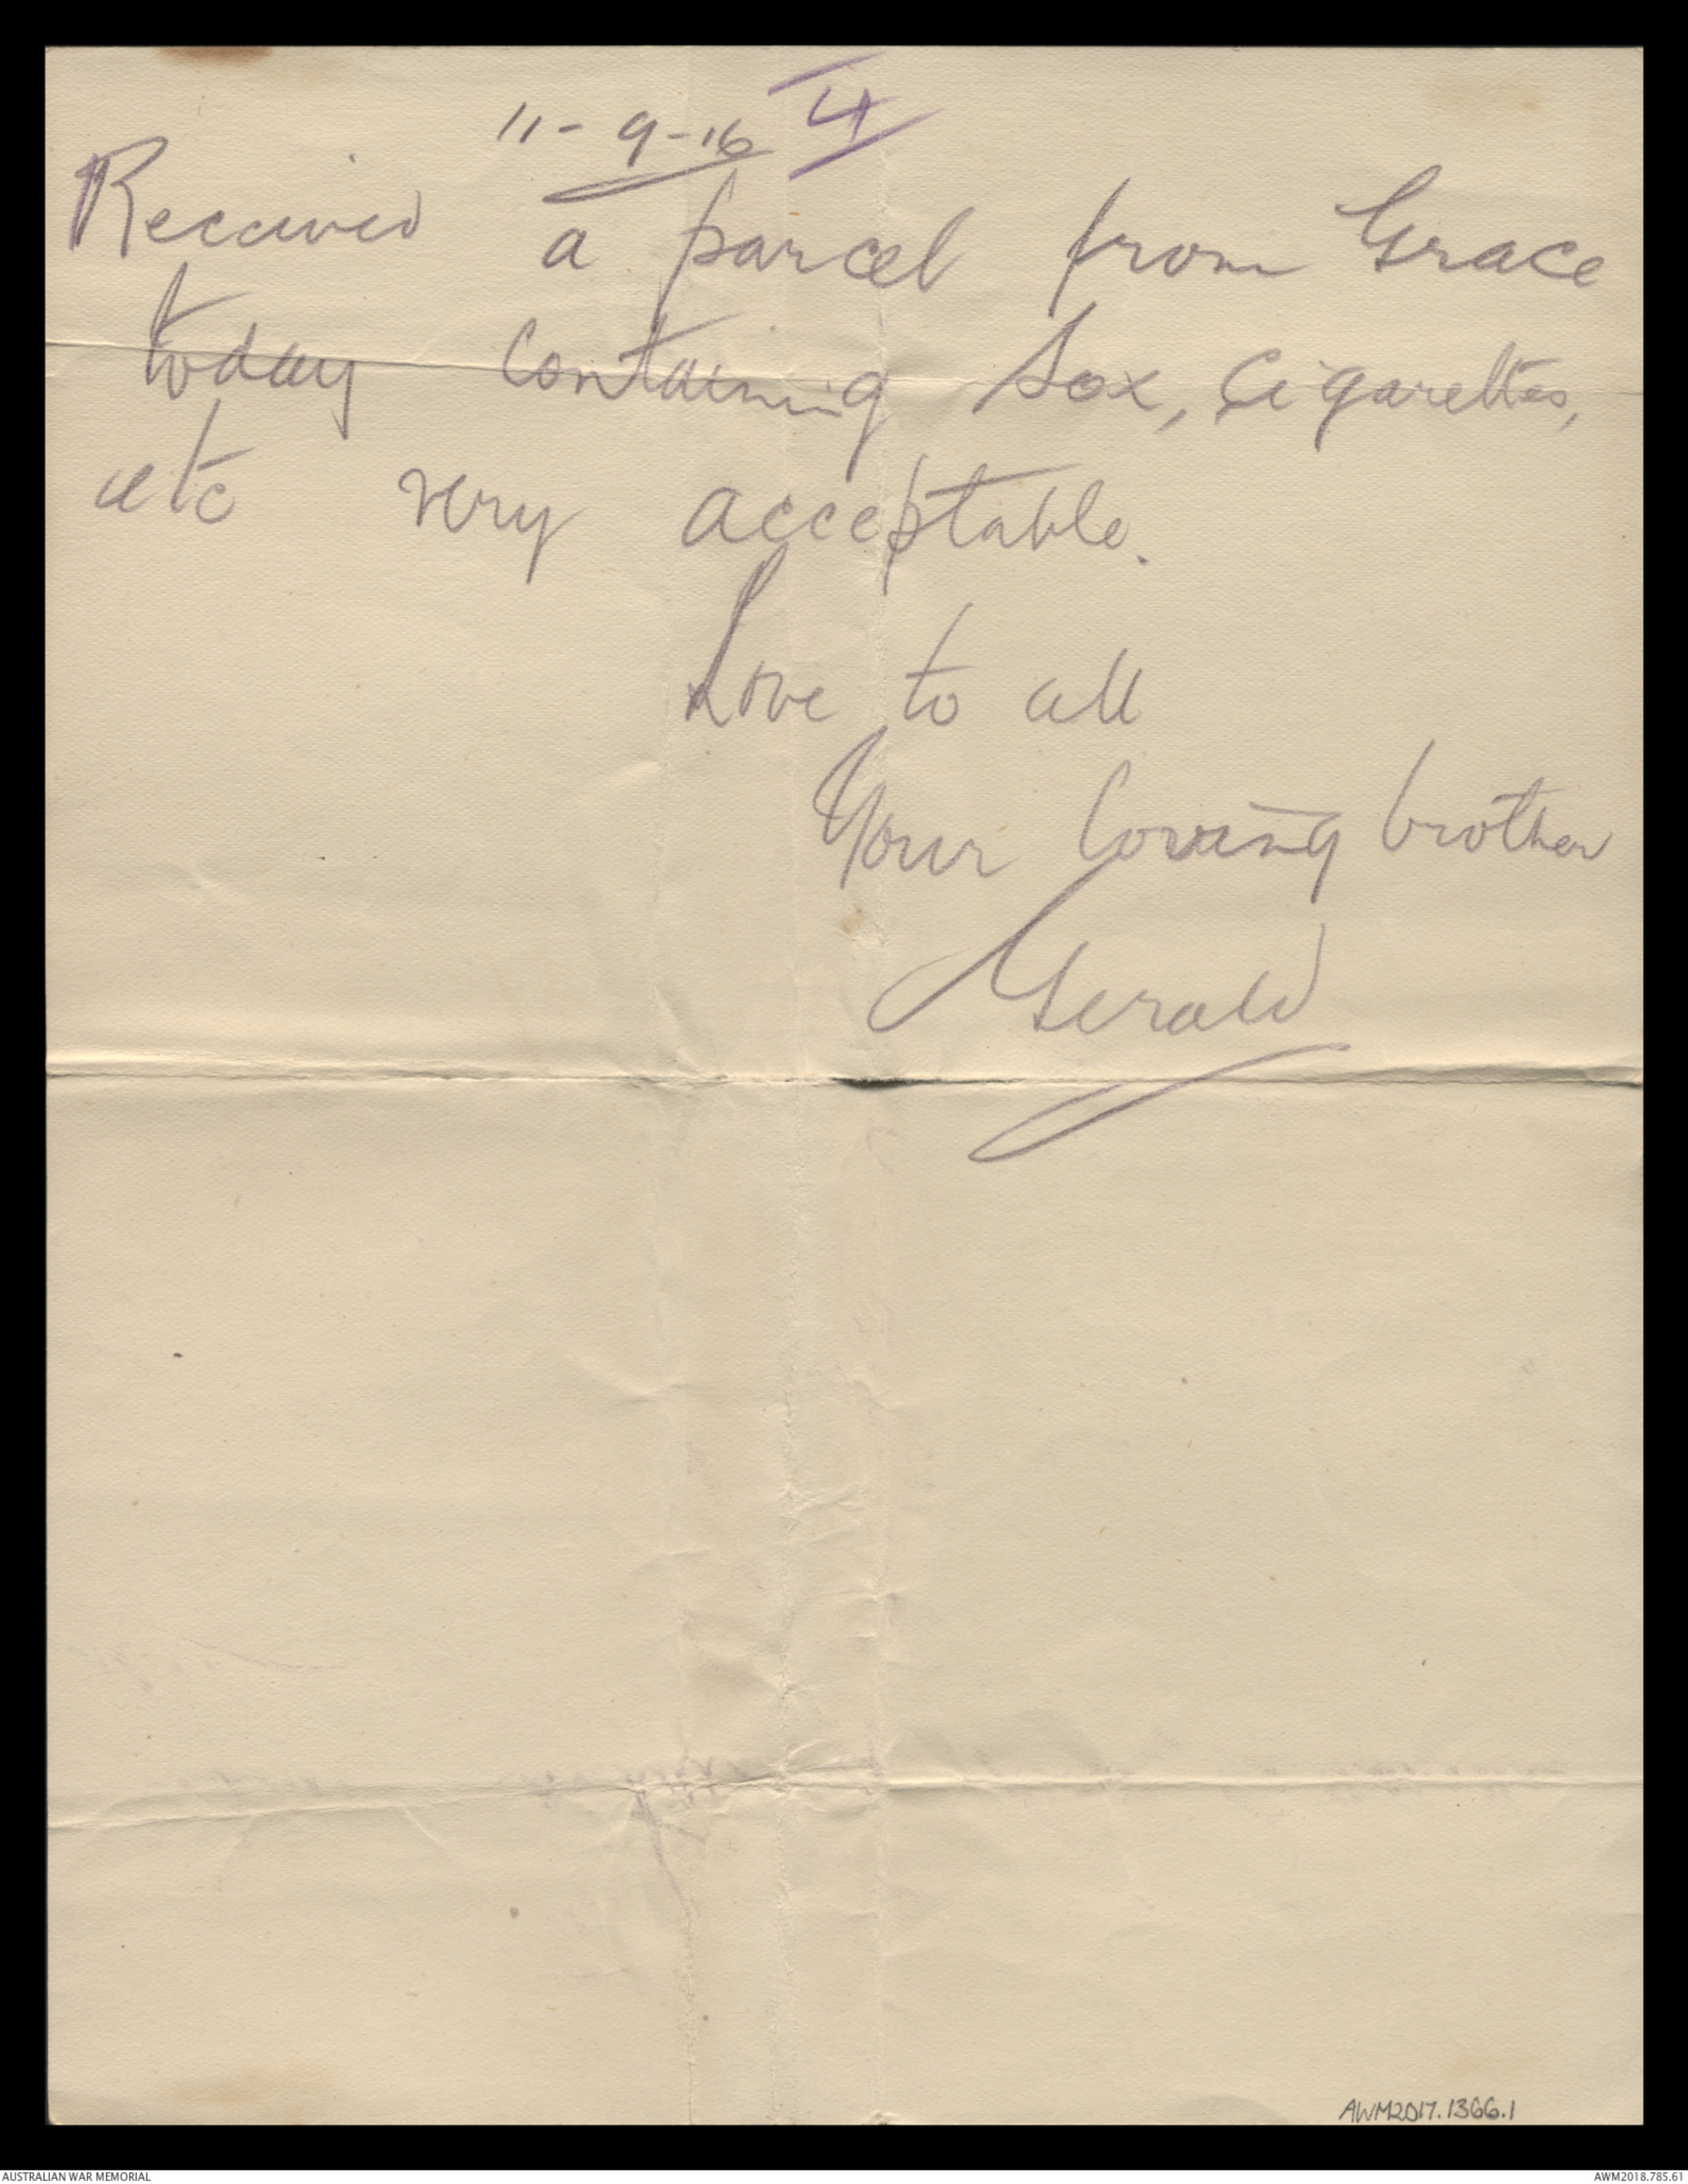 11-9-16 4
Received a parcel from Grace
today containing Sox, Cigarettes,
etc very acceptable.
Love to all
Your loving brother
Gerald
AWM2017.1366.1
AUSTRALIAN WAR MEMORIAL AWM2018.785.61